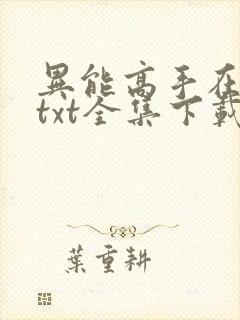 異能高手在
txt全集下載
葉重耕